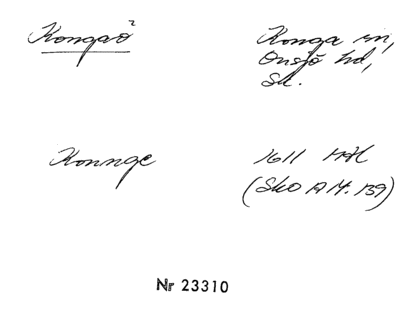 Kongaö² Konga sn,
Onsjö hd,
Sk.
Konnge 1611
(Sko A M. 139)
Nr 23310